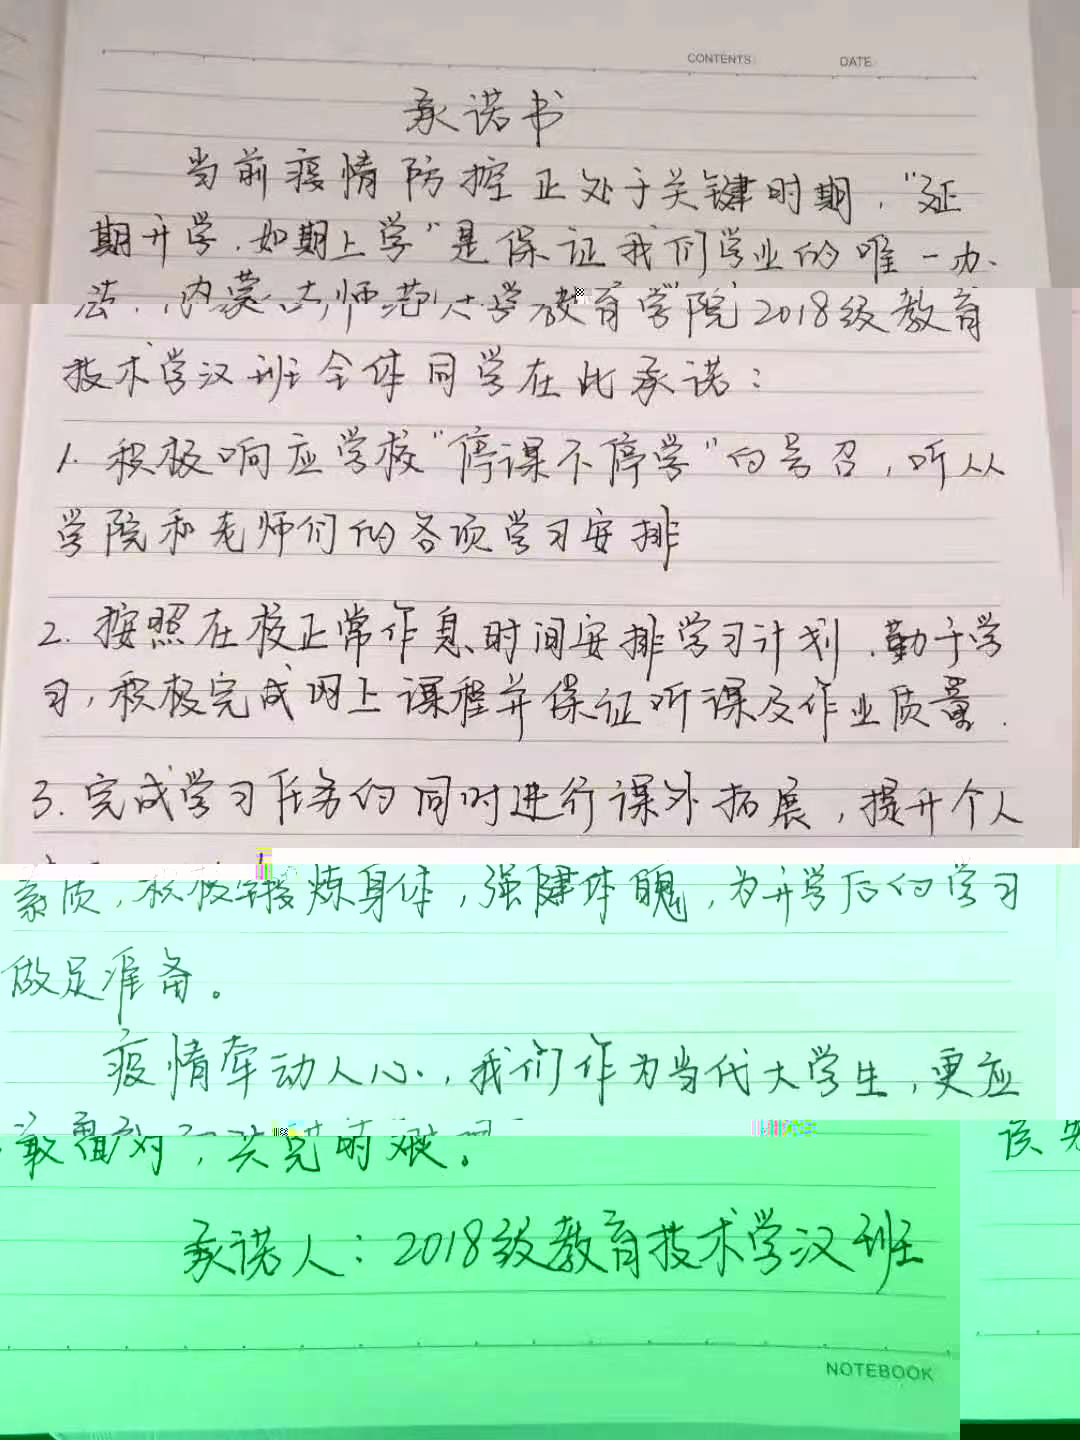 CONTENTS DATE
承诺书
当前疫情防控正处于关键时期，“延
期开学，如期上学”是保证我们学业的唯一办
法，内蒙古师范大学教育学院2018级教育
技术学汉班全体同学在此承诺：
1. 积极响应学校“停课不停学”的号召，听从
学院和老师们的各项学习安排
2. 按照在校正常作息时间安排学习计划，勤于学
习，积极完成网上课程并保证听课及作业质量.
3. 完成学习任务的同时进行课外拓展，提升个人
素质，积极锻炼身体，强健体魄，为开学后的学习
做足准备。
疫情牵动人心，我们作为当代大学生，更应
该
敢面对，共克时艰。
承诺人：2018级教育技术学汉班
NOTEBOOK